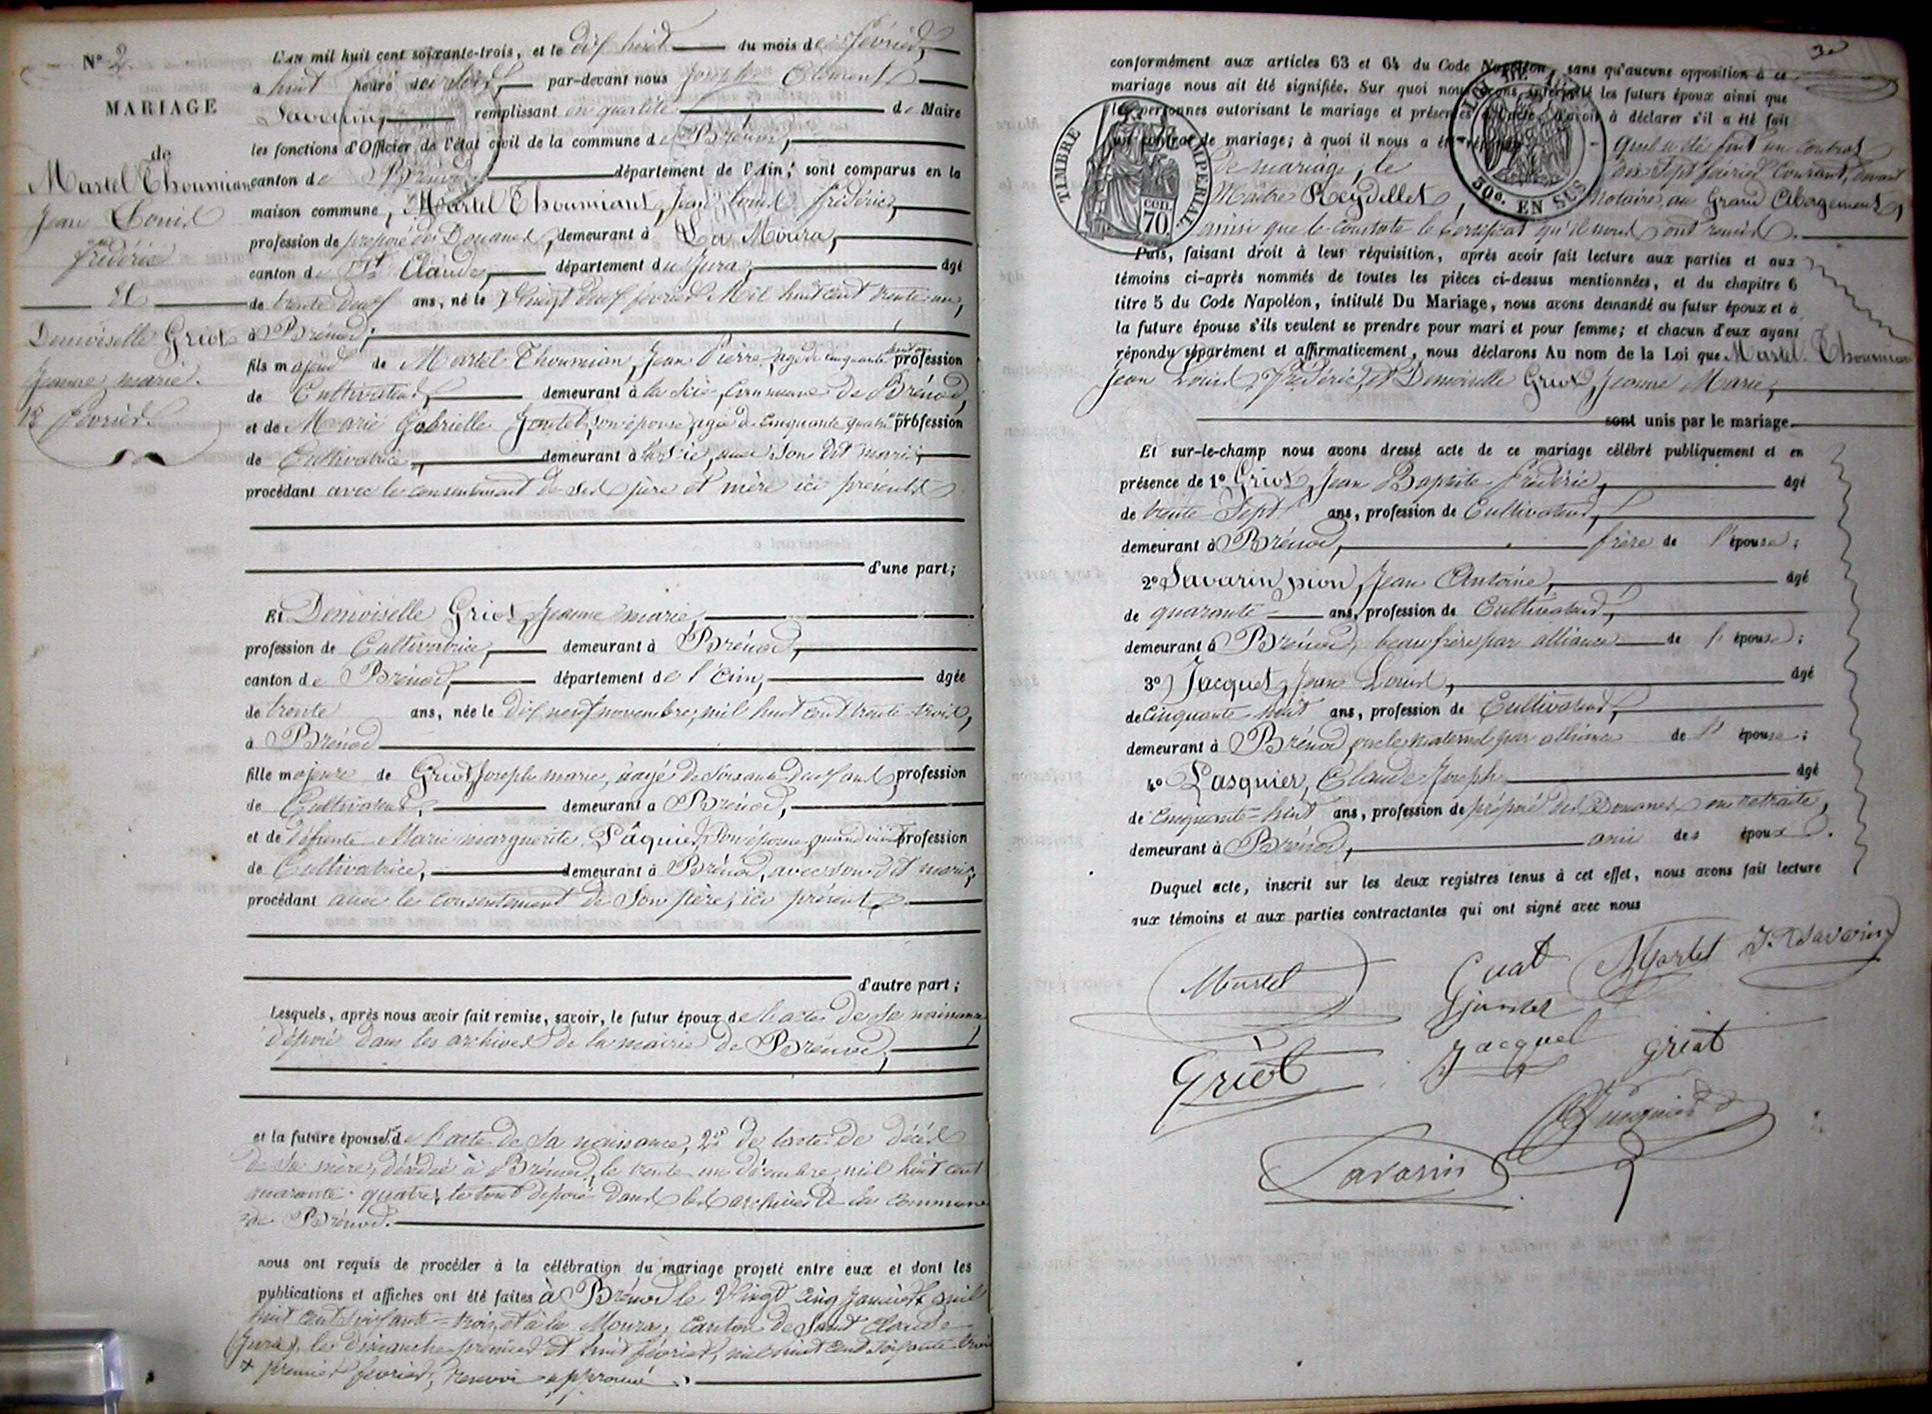 N° 2.
MARIAGE
de
Martel Thoumian
Jean Louis
Frédéric
Et
Demoiselle Griot
Jeanne marie.
18 février.
L'AN mil huit cent soixante-trois, et le dix huit du mois de février,
à huit heure du soir, par-devant nous Joseph Clément
Savarin remplissant en qualité de Maire
les fonctions d'Officier de l'état civil de la commune de Brénod,
canton de Brénod département de l'Ain; sont comparus en la
maison commune, Martel Thoumiant, Jean Louis frédéric,
profession de préposé des Douanes, demeurant à La Moura,
canton de St Claude, département du Jura, âgé
de trente deux ans, né le Vingt deux février Mil huit cent trente un,
à Brénod;
fils majeur de Martel Thoumian, Jean Pierre, agé de cinquante huit ans profession
de Cultivateur, demeurant à la Scie, Commune de Brénod,
et de Marie Gabrielle Jontet, son épouse, agée de cinquante quatre ans profession
de Cultivatrice, demeurant à la Scie, avec son dit mari;
procédant avec le consentement de ses père et mère ici présents
d'une part;
Et Demoiselle Griot, Jeanne marie,
profession de Cultivatrice, demeurant à Brénod,
canton de Brénod, département de l'Ain, âgée
de trente ans, née le dix neuf novembre, mil huit cent trente trois,
à Brénod
fille majeure de Griot Joseph marie, agé de soixante deux ans, profession
de Cultivateur, demeurant à Brénod,
et de défunte Marie marguerite Pâquier, son épouse, quand vivait profession
de Cultivatrice, demeurant à Brénod, avec son dit mari,
procédant avec le consentement de son père, ici présent,
d'autre part;
Lesquels, après nous avoir fait remise, savoir, le futur époux de l'acte de sa naissance
déposé dans les archives de la mairie de Brénod,
et la future épouse 1° de l'acte de sa naissance, 2° de l'acte de décès
de sa mère, décédée à Brénod, le trente un décembre, mil huit cent
quarante quatre, le tout déposé dans les archives de la commune
de Brénod.
nous ont requis de procéder à la célébration du mariage projeté entre eux et dont les
publications et affiches ont été faites à Brénod le Vingt cinq janvier + mil
huit cent soixante-trois, et à la Moura, canton de Saint Claude
(Jura), les dimanches premier et huit février, mil huit cent soixante trois
+ premier février, renvoi approuvé.
3
conformément aux articles 63 et 64 du Code Napoléon, sans qu'aucune opposition à ce
mariage nous ait été signifiée. Sur quoi nous avons interpellé les futurs époux ainsi que
les personnes autorisant le mariage et présentes à l'acte, d'avoir à déclarer s'il a été fait
un contrat de mariage; à quoi il nous a été répondu qu'il a été fait un contrat
de mariage, le dix sept février courant, devant
Maître Reydellet, notaire, au Grand Abergement,
ainsi que le constate le certificat qu'ils nous ont remis.
TIMBRE IMPERIAL
COM
70
50c. EN SUS
Puis, faisant droit à leur réquisition, après avoir fait lecture aux parties et aux
témoins ci-après nommés de toutes les pièces ci-dessus mentionnées, et du chapitre 6
titre 5 du Code Napoléon, intitulé Du Mariage, nous avons demandé au futur époux et à
la future épouse s'ils veulent se prendre pour mari et pour femme; et chacun d'eux ayant
répondu séparément et affirmativement, nous déclarons Au nom de la Loi que Martel Thoumian
Jean Louis, Frédéric, et Demoiselle Griot, Jeanne Marie,
sont unis par le mariage.
Et sur-le-champ nous avons dressé acte de ce mariage célébré publiquement et en
présence de 1° Griot, Jean Baptiste frédéric, âgé
de trente Sept ans, profession de Cultivateur,
demeurant à Brénod, frère de l'épouse;
2° Savarin pion, Jean Antoine, âgé
de quarante ans, profession de Cultivateur,
demeurant à Brénod, beau frère par alliance de l'épouse;
3° Jacquet, Jean Louis, âgé
de Cinquante huit ans, profession de Cultivateur,
demeurant à Brénod oncle maternel par alliance de l'épouse;
4° Pasquier, Claude Joseph âgé
de cinquante-huit ans, profession de préposé des Douanes en retraite,
demeurant à Brénod, ami des époux.
Duquel acte, inscrit sur les deux registres tenus à cet effet, nous avons fait lecture
aux témoins et aux parties contractantes qui ont signé avec nous
Martel
Martel
J. Savarin
Griot
Jacquet
griot
Savarin